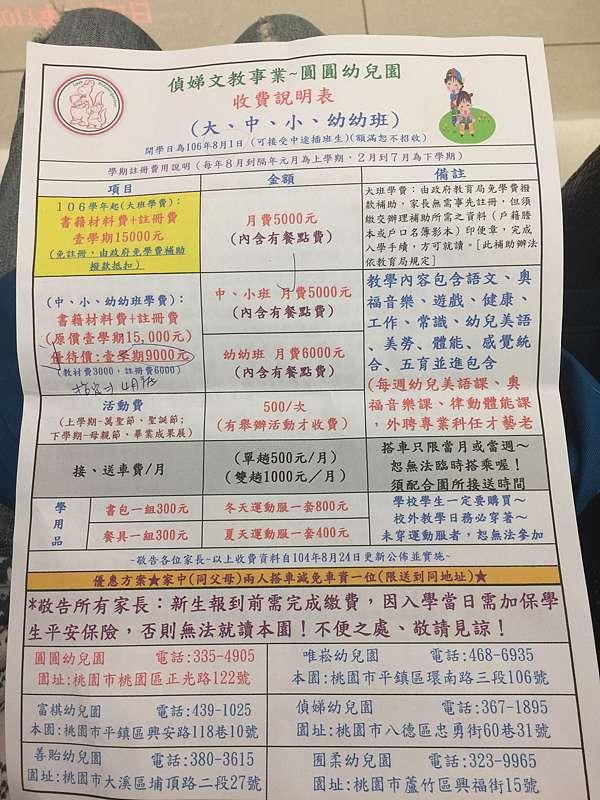 偵娣文教事業~圓圓幼兒園
收費說明表
(大、中、小、幼幼班)
開學日為106年8月1日 (可接受中途插班生)(額滿恕不招收)
學期註冊費用說明 (每年8月到隔年元月為上學期,2月到7月為下學期)
項目
金額
備註
106學年起(大班學費):
書籍材料費+註冊費
壹學期15000元
(免註冊,由政府免學費補助
撥款抵扣)
月費5000元
(內含有餐點費)
大班學費:由政府教育局免學費撥
款補助,家長無需事先註冊,但須
繳交辦理補助所需之資料(戶籍謄
本或戶口名簿影本)印便章,完成
入學手續,方可就讀。[此補助辦法
依教育局規定]
(中、小、幼幼班學費):
書籍材料費+註冊費
(原價壹學期15,000元)
優待價:壹學期9000元
(教材費3000,註冊費6000)
中、小班 月費5000元
(內含有餐點費)
幼幼班 月費6000元
(內含有餐點費)
教學內容包含語文、奧
福音樂、遊戲、健康、
工作、常識、幼兒美語
、美勞、體能、感覺統
合、五育並進包含
(每週幼兒美語課、奧
福音樂課、律動體能課
,外聘專業科任才藝老
活動費
(上學期-萬聖節、聖誕節;
下學期-母親節、畢業成果展)
500/次
(有舉辦活動才收費)
接、送車費/月
(單趟500元/月)
(雙趟1000元/月)
搭車只限當月或當週~
恕無法臨時搭乘喔!
須配合園所接送時間
學用品
書包一組300元
冬天運動服一套800元
餐具一組300元
夏天運動服一套400元
學校學生一定要購買~
校外教學日務必穿著~
未穿運動服者,恕無法參加
~敬告各位家長~以上收費資料自104年8月24日更新公佈並實施~
優惠方案★家中(同父母)兩人搭車減免車資一位(限送到同地址)★
*敬告所有家長:新生報到前需完成繳費,因入學當日需加保學
生平安保險,否則無法就讀本園!不便之處、敬請見諒!
圓圓幼兒園 電話:335-4905
園址:桃園市桃園區正光路122號
唯崧幼兒園 電話:468-6935
本園:桃園市平鎮區環南路三段106號
富棋幼兒園 電話:439-1025
本園:桃園市平鎮區興安路118巷10號
偵娣幼兒園 電話:367-1895
園址:桃園市八德區忠勇街60巷31號
善貽幼兒園 電話:380-3615
園址:桃園市大溪區埔頂路二段27號
囿柔幼兒園 電話:323-9965
園址:桃園市蘆竹區興福街15號